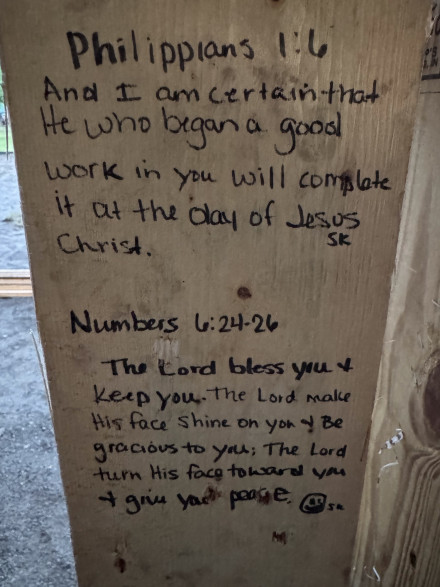 Philippians 1:6
And I am certain that
He who began a good
work in you will complete
it at the day of Jesus
Christ. SK
Numbers 6:24-26
The Lord bless you &
keep you. The Lord make
His face shine on you & Be
gracious to you; The Lord
turn His face toward you
& give you peace. SK